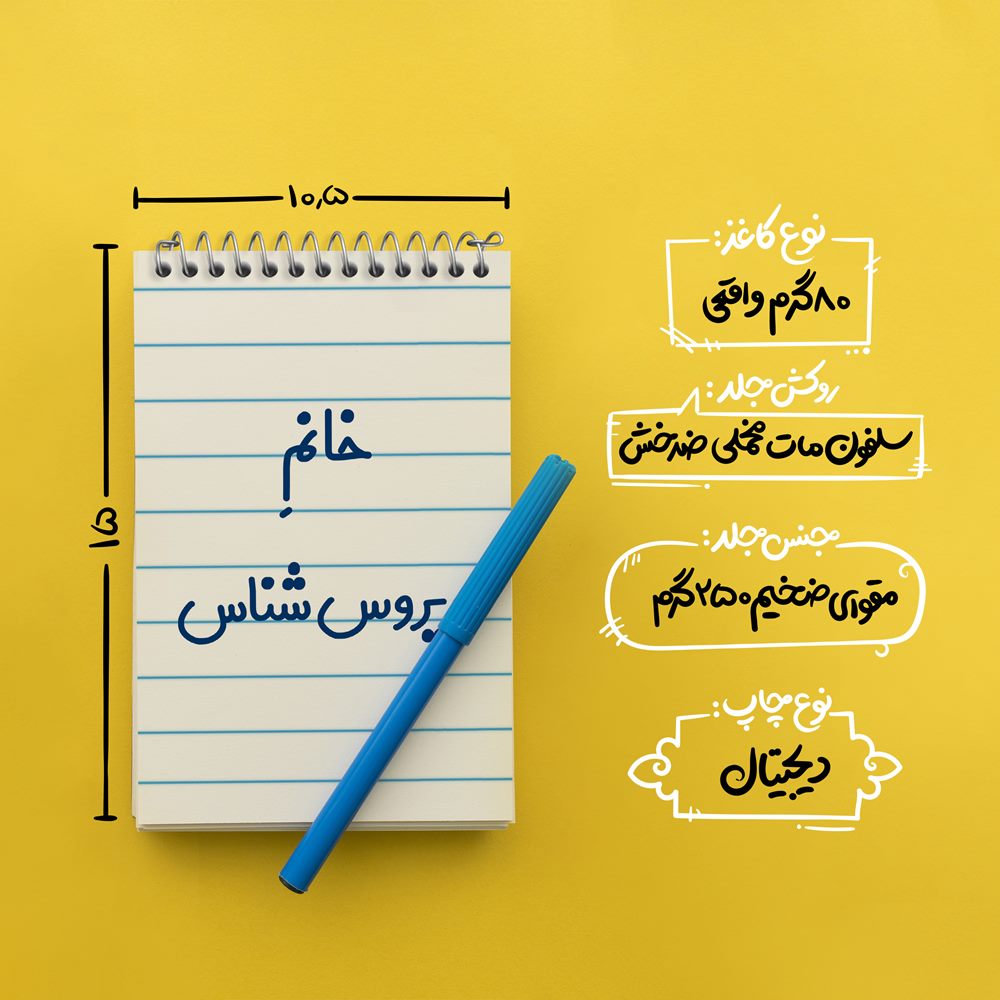 ۱۰٫۵
۱۵
خانمِ
یروس شناس
نوع کاغذ:
۸۰گرم واقعی
روکش جلد:
سلفون مات مخملی ضدخش
جنس جلد:
مقوای ضخیم ۲۵۰ گرم
نوع چاپ:
دیجیتال